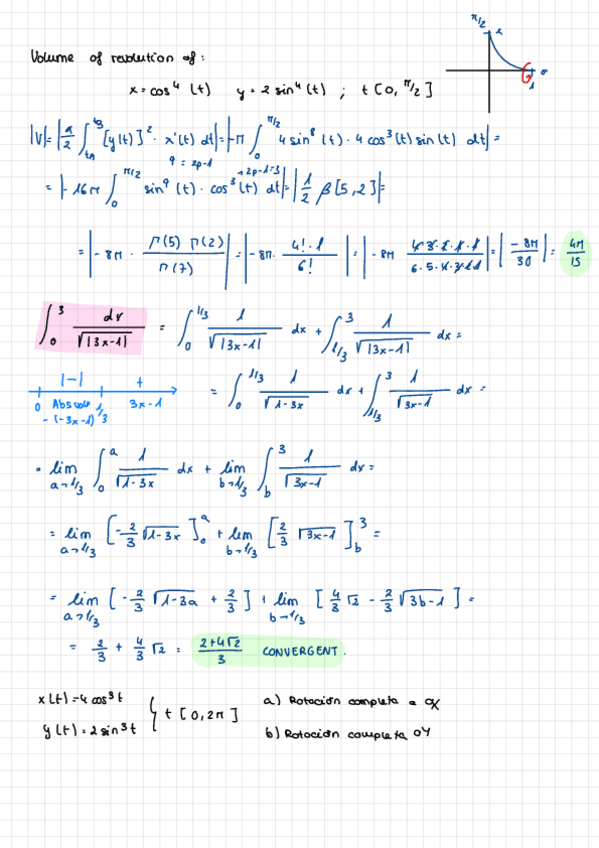 π/2
2
0
1
Volume of revolution of:
x = cos⁴ (t)   y = 2 sin⁴ (t) ; t [0, π/2]
|V| = |π/2 ∫_{tA}^{tB} [y(t)]² · x'(t) dt| = |-π ∫_0^{π/2} 4 sin⁸ (t) · 4 cos³(t) sin(t) dt| =
9 = 2p-1   2p-1=3
= |-16π ∫_0^{π/2} sin⁹ (t) · cos³ (t) dt| = |1/2 β[5,2]| =
= |-8π · Γ(5) Γ(2) / Γ(7)| = |-8π · 4! · 1 / 6!| = |-8π 4·3·2·1·1 / 6·5·4·3·2·1| = |-8π/30| = 4π/15
∫_0^3 dx/√|3x-1| = ∫_0^{1/3} 1/√|3x-1| dx + ∫_{1/3}^3 1/√|3x-1| dx =
|-|   +
0   Absolute   1/3   3x-1
-(-3x-1)
= ∫_0^{1/3} 1/√1-3x dx + ∫_{1/3}^3 1/√3x-1 dx =
= lim_{a→1/3} ∫_0^a 1/√1-3x dx + lim_{b→1/3} ∫_b^3 1/√3x-1 dx =
= lim_{a→1/3} [-2/3 √1-3x]_0^a + lim_{b→1/3} [2/3 √3x-1]_b^3 =
= lim_{a→1/3} [-2/3 √1-3a + 2/3] + lim_{b→1/3} [4/3 √2 - 2/3 √3b-1] =
= 2/3 + 4/3 √2 = 2+4√2/3 CONVERGENT.
x(t) = 4 cos³t
y(t) = 2 sin³t
} t [0, 2π]
a) Rotación completa a OX
b) Rotación completa OY